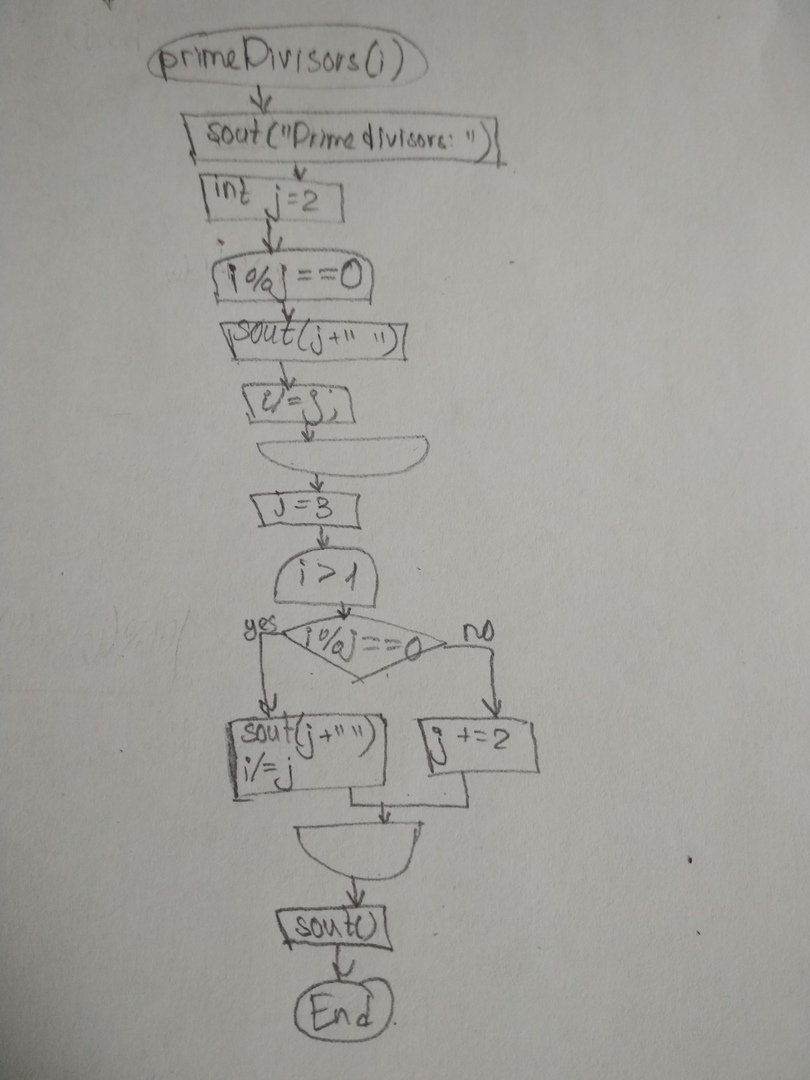 primeDivisors(i)
sout("Prime divisors: ")
int j=2
i%j==0
sout(j+" ")
i/=j;
j=3
i>1
yes
i%j==0
no
sout(j+" ")
i/=j
j+=2
sout()
End